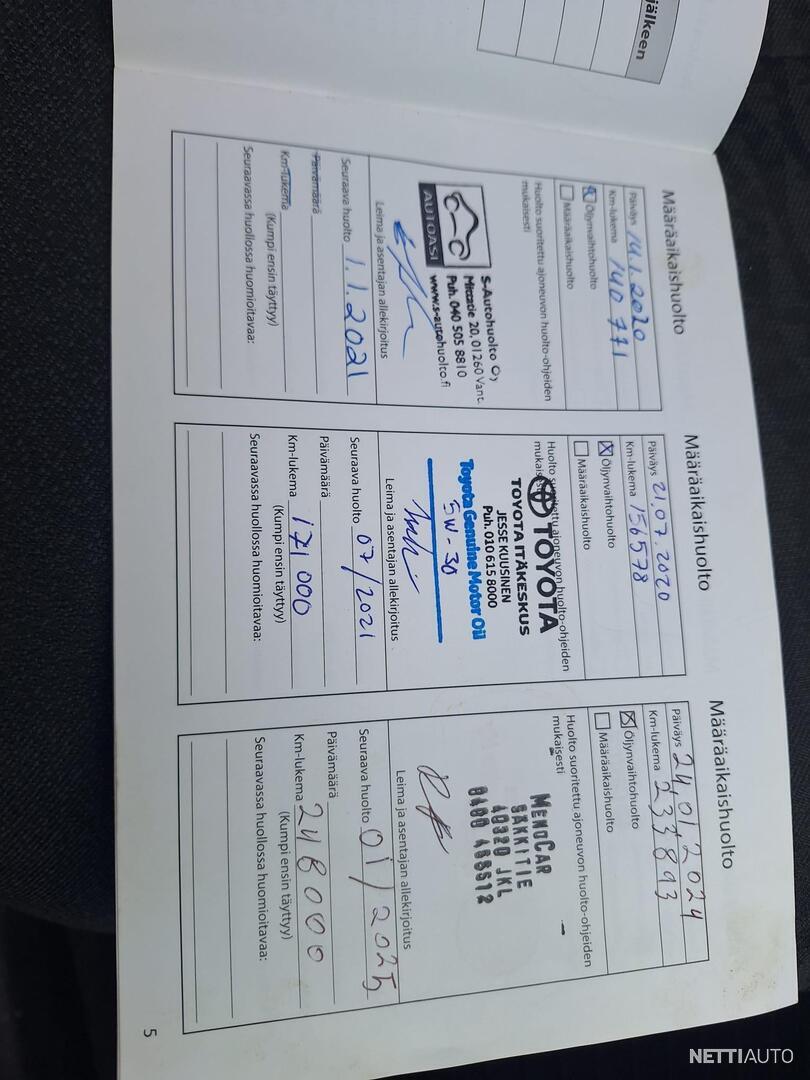 jälkeen
Määräaikaishuolto
Päiväys 14.1.2020
Km-lukema 140 771
Öljynvaihtohuolto
Määräaikaishuolto
Huolto suoritettu ajoneuvon huolto-ohjeiden
mukaisesti
AUTOASI
S-Autohuolto Oy
Mittatie 20, 01260 Vant.
Puh. 040 505 8810
www.s-autohuolto.fi
Leima ja asentajan allekirjoitus
Seuraava huolto 1.1.2021
Päivämäärä
Km-lukema
(Kumpi ensin täyttyy)
Seuraavassa huollossa huomioitavaa:
Määräaikaishuolto
Päiväys 21.07.2020
Km-lukema 156578
Öljynvaihtohuolto
Määräaikaishuolto
Huolto suoritettu ajoneuvon huolto-ohjeiden
mukaisesti
TOYOTA
TOYOTA ITÄKESKUS
JESSE KUUSINEN
Puh. 010 615 8000
Toyota Genuine Motor Oil
5W-30
Leima ja asentajan allekirjoitus
Seuraava huolto 07/2021
Päivämäärä
Km-lukema 171 000
(Kumpi ensin täyttyy)
Seuraavassa huollossa huomioitavaa:
Määräaikaishuolto
Päiväys 24.01.2024
Km-lukema 233893
Öljynvaihtohuolto
Määräaikaishuolto
Huolto suoritettu ajoneuvon huolto-ohjeiden
mukaisesti
MENOCAR
SAKKITIE
40320 JKL
Leima ja asentajan allekirjoitus
Seuraava huolto 01/2025
Päivämäärä
Km-lukema 248000
(Kumpi ensin täyttyy)
Seuraavassa huollossa huomioitavaa:
5
NETTIAUTO